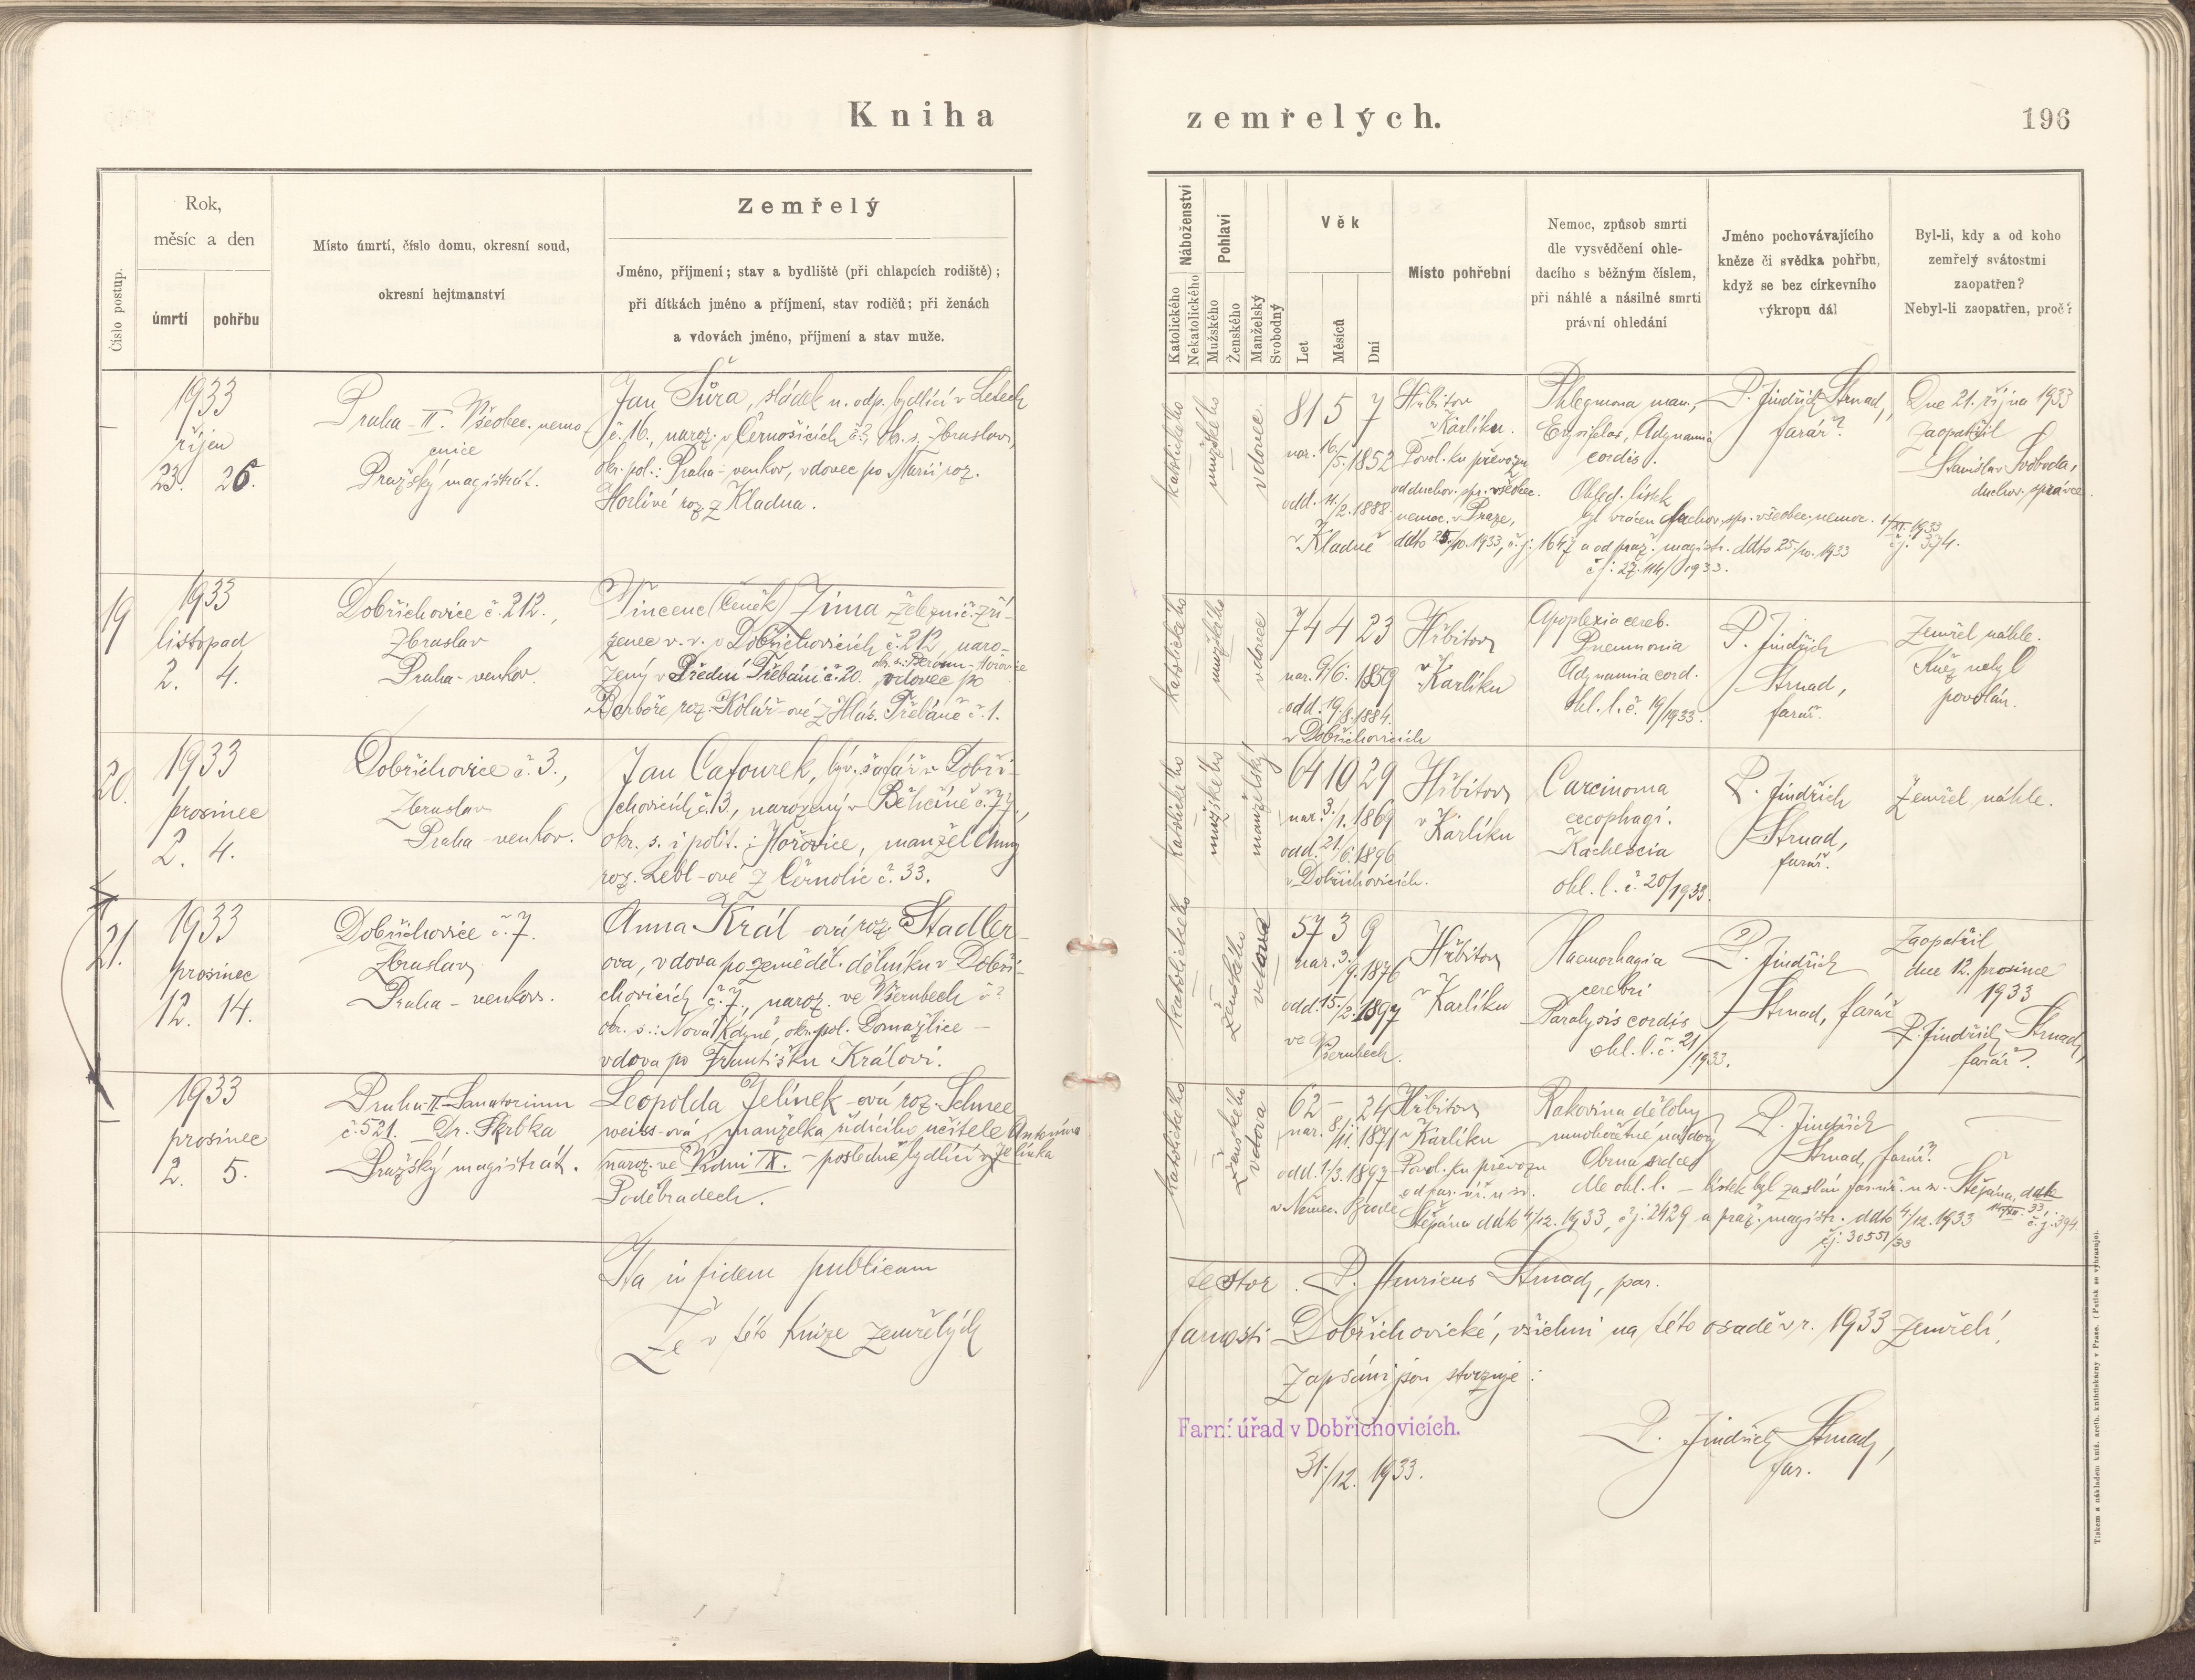 Kniha zemřelých.
196
Číslo postup.
Rok,
měsíc a den
úmrtí
pohřbu
Místo úmrtí, číslo domu, okresní soud,
okresní hejtmanství
Zemřelý
Jméno, příjmení; stav a bydliště (při chlapcích rodiště);
při dítkách jméno a příjmení, stav rodičů; při ženách
a vdovách jméno, příjmení a stav muže.
Náboženství
Katolického
Nekatolického
Pohlaví
Mužského
Ženského
Manželský
Svobodný
Věk
Let
Měsíců
Dní
Místo pohřební
Nemoc, způsob smrti
dle vysvědčení ohle-
dacího s běžným číslem,
při náhlé a násilné smrti
právní ohledání
Jméno pochovávajícího
kněze či svědka pohřbu,
když se bez církevního
výkropu dál
Byl-li, kdy a od koho
zemřelý svátostmi
zaopatřen?
Nebyl-li zaopatřen, proč?
1933
říjen
23. 26.
Praha-II. Všeobec. nemo
cnice
Pražský magistrát.
Jan Šůra, sládek n. odp. bydlící v Letech
č. 16., naroz. v Černošicích č.?, ok. s. Zbraslav,
okr. pol.: Praha-venkov, vdovec po Marii roz.
Horlivé roz. z Kladna.
katolického
mužského
vdovec.
81 5 7
nar. 16/5. 1852
odd. 11/2. 1888.
v Kladně
Hřbitov
v Karlíku.
Povol. ku převozu
od duchov. spr. všeobec.
nemoc. v Praze,
ddto 25./10. 1933, č. j. 1647 a od praž. magistr. ddto 25./10. 1933
Phlegmona man.,
Erysipelas, Adynamia
cordis.
Ohled. lístek
byl vrácen duchov. spr. všeobec. nemoc. 1/XI. 1933
č. j. 374.
P. Jindřich Strnad,
farář.
Dne 21. října 1933
zaopatřil
Stanislav Svoboda,
duchov. správce
19
1933
listopad
2. 4.
Dobřichovice č. 212.,
Zbraslav
Praha-venkov.
Vincenc (Čeněk) Zima železnič. zří-
zenec v. v. v Dobřichovicích č. 212, naro-
zený v Přední Třebáni č. 20. ok. s.: Beroun-Hořovice vdovec po
Barboře roz. Kolář-ové z Hlás. Třebáně č. 1.
katolického
mužského
vdovec
74 4 23
nar. 9/6. 1859
odd. 19/8. 1884.
v Dobřichovicích
Hřbitov
v Karlíku
Apoplexia cereb.
Pneumonia
Adynamia cord.
ohl. l. č. 19/1933.
P. Jindřich
Strnad,
farář.
Zemřel náhle.
Kněz nebyl
povolán.
20.
1933
prosinec
2. 4.
Dobřichovice č. 3.,
Zbraslav
Praha-venkov.
Jan Cafourek, býv. šafář v Dobři-
chovicích č. 3, narozený v Běhčíně č. 77.,
okr. s. i polit.: Hořovice, manžel Anny
roz. Lebl-ové z Černolic č. 33.
katolického
mužského
manželský
64 10 29
nar. 3./1. 1869
odd. 21/6. 1896
v Dobřichovicích.
Hřbitov
v Karlíku
Carcinoma
oesophagi.
Kachexia
ohl. l. č. 20/1933.
P. Jindřich
Strnad,
farář.
Zemřel náhle.
21.
1933
prosinec
12. 14.
Dobřichovice č. 7.
Zbraslav
Praha-venkov.
Anna Král-ová roz. Stadler-
ova, vdova po zeměděl. dělníku v Dobři-
chovicích č. 7., naroz. ve Všerubech č.?
okr. s.: Nová Kdyně, okr. pol. Domažlice –
vdova po Františku Královi.
katolického
ženského
vdova
57 3 9
nar. 3./9. 1876
odd. 15./2. 1897
ve
Všerubech.
Hřbitov
v Karlíku
Haemorhagia
cerebri
Paralysis cordis
ohl. l. č. 21/1933.
P. Jindřich
Strnad, farář
Zaopatřil
dne 12. prosince
1933
P. Jindřich Strnad,
farář.
1933
prosinec
2. 5.
Praha-II.-Sanatorium
č. 521. Dr. Skrbka
Pražský magistrát.
Leopolda Jelínek-ová roz. Schnee
weiss-ová, manželka řídícího učitele Antonína
Jelínka
naroz. ve Vídni IX. – posledně bydlící v
Poděbradech.
katolického
ženského
vdova
62 – 24
nar. 8/11. 1871
odd. 1./3. 1897
v Němec. Brodě
Hřbitov
v Karlíku
Povol. ku převozu
od far. úř. u sv.
Štěpána ddto 4/12. 1933, č. j. 2429 a praž. magistr. ddto 4./12. 1933
č. j. 30551/33
Rakovina dělohy
mnohočetné nádory
Obrna srdce
dle ohl. l. – lístek byl zaslán far. úř. u sv. Štěpána, ddto
č. j. 394
P. Jindřich
Strnad, farář.
Ita in fidem publicam testor. P. Henricus Strnad, par.
Že v této knize zemřelých farnosti Dobřichovické, všichni na této osadě v r. 1933 zemřelí,
zapsáni jsou stvrzuje:
Farní úřad v Dobřichovicích.
31./12. 1933.
P. Jindřich Strnad,
far.
Tiskem a nákladem kníž. arcib. knihtiskárny v Praze. (Patisk se vyhrazuje).